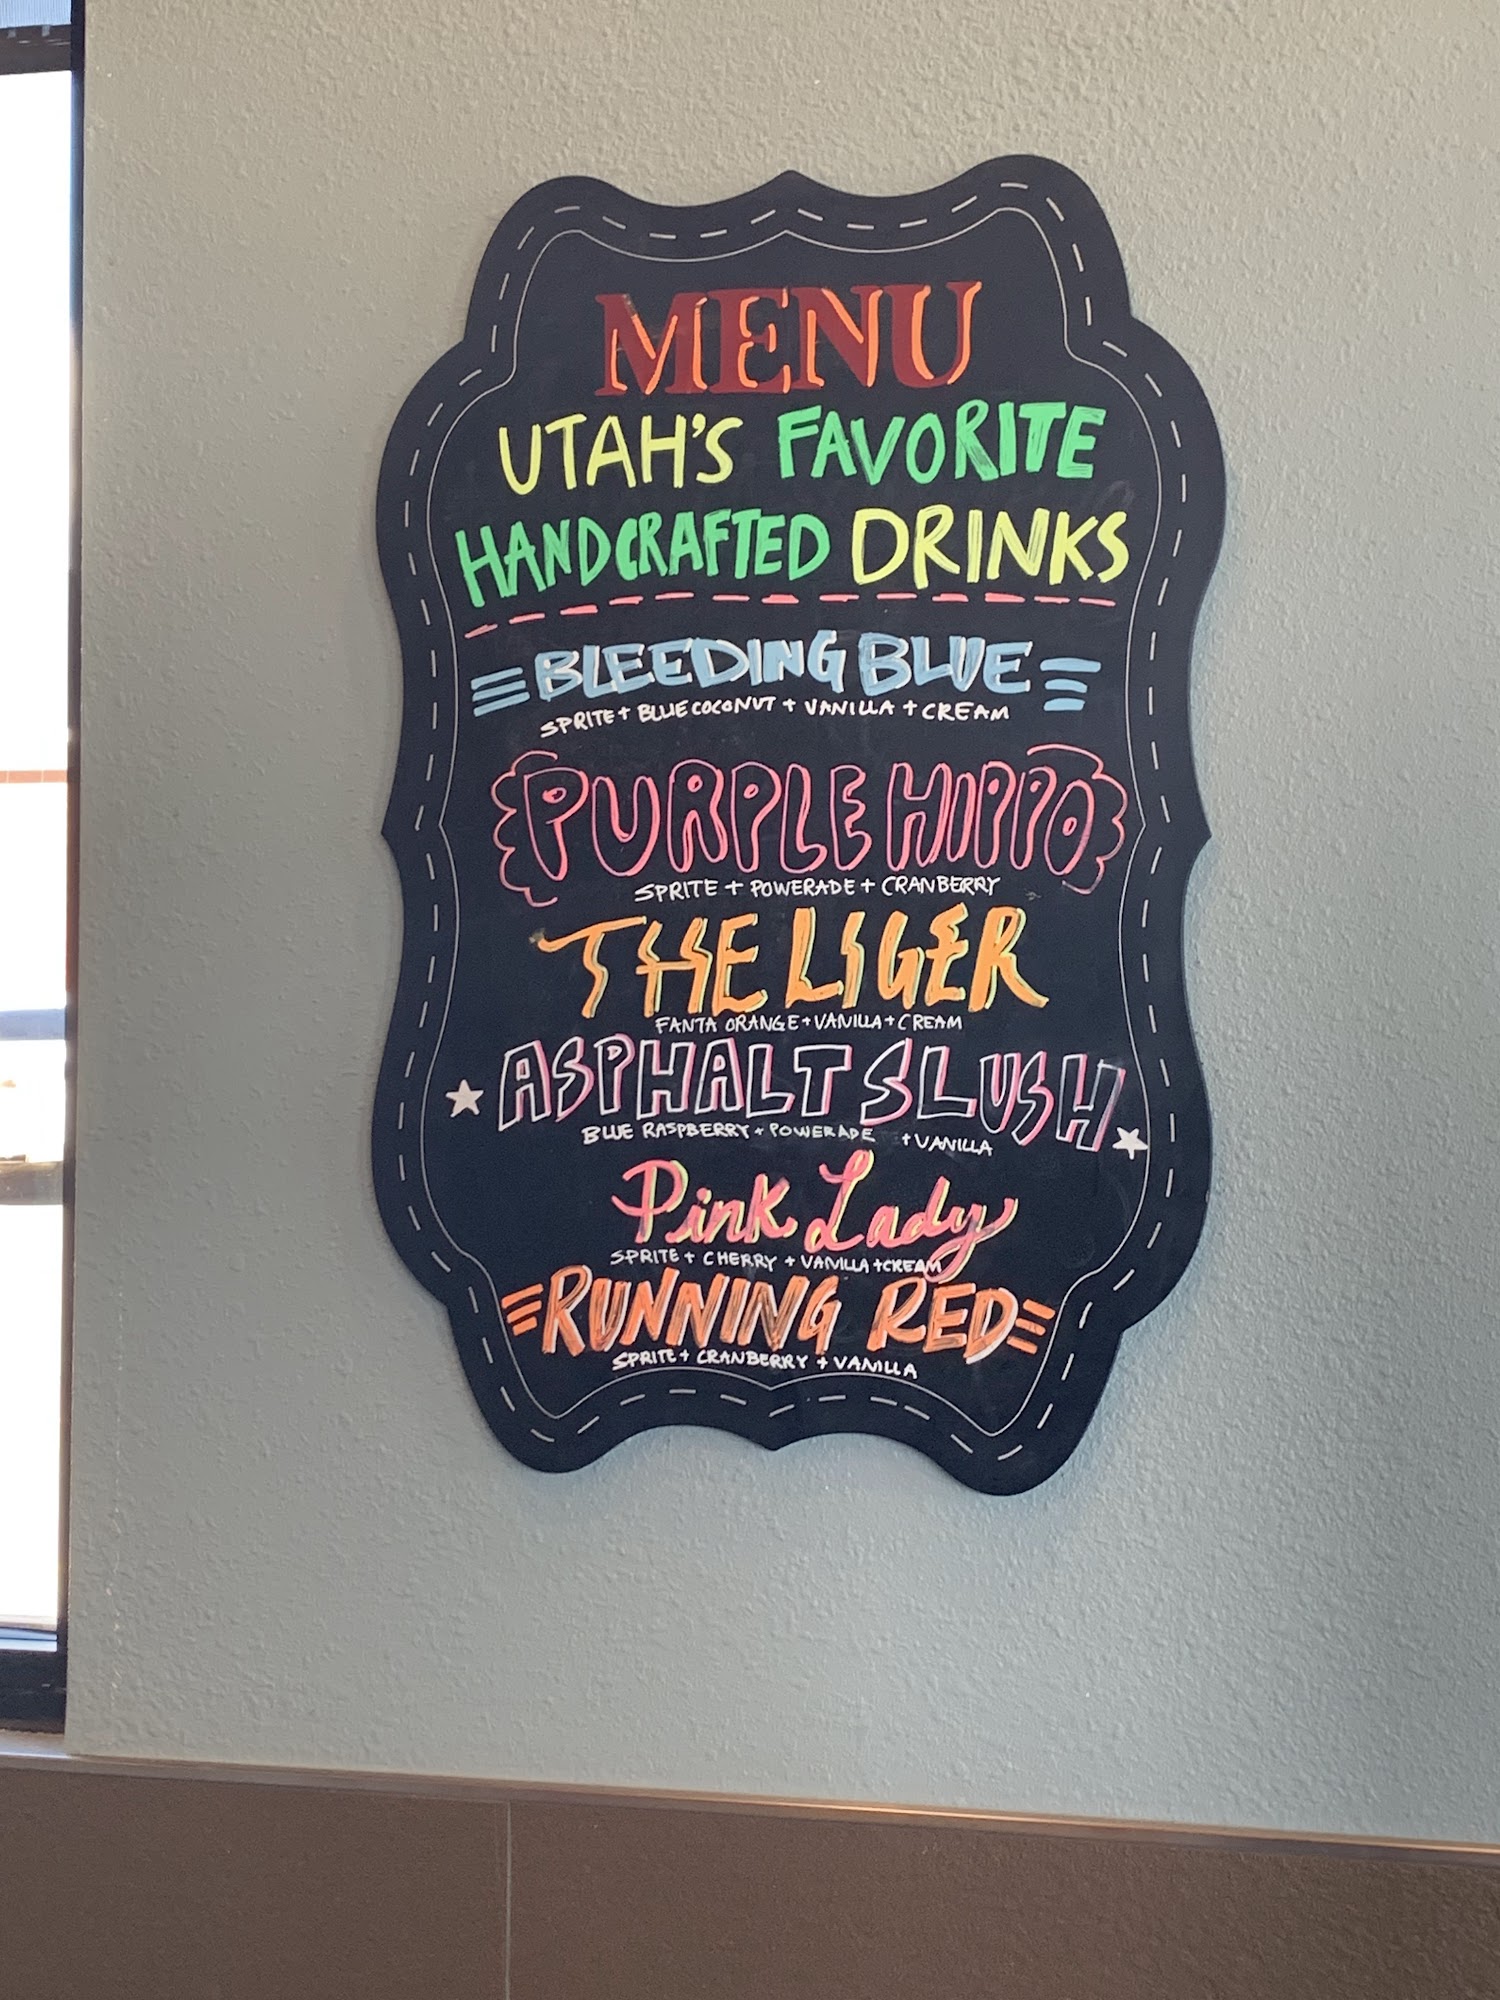 MENU
UTAH'S FAVORITE
HANDCRAFTED DRINKS
BLEEDING BLUE
SPRITE + BLUE COCONUT + VANILLA + CREAM
PURPLE HIPPO
SPRITE + POWERADE + CRANBERRY
THE LIGER
FANTA ORANGE + VANILLA + CREAM
ASPHALT SLUSH
BLUE RASPBERRY + POWERADE + VANILLA
Pink Lady
SPRITE + CHERRY + VANILLA + CREAM
RUNNING RED
SPRITE + CRANBERRY + VANILLA